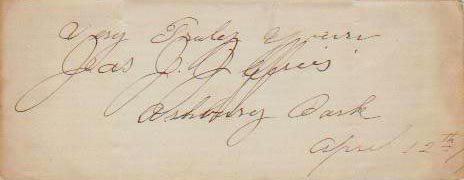 Very Truly Yours
Jas J. Jeffries
Asbury Park
April 12th